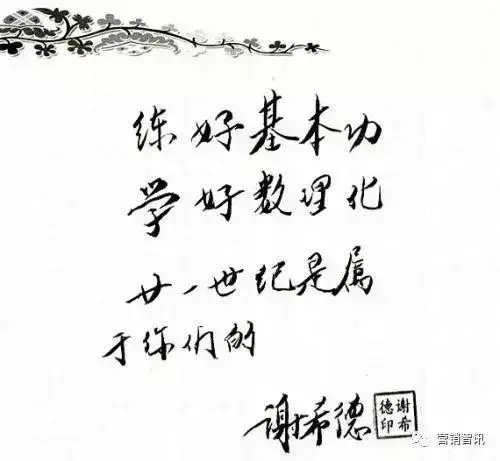 练好基本功
学好数理化
廿一世纪是属
于你们的
谢希德
谢希
德印
营销智讯